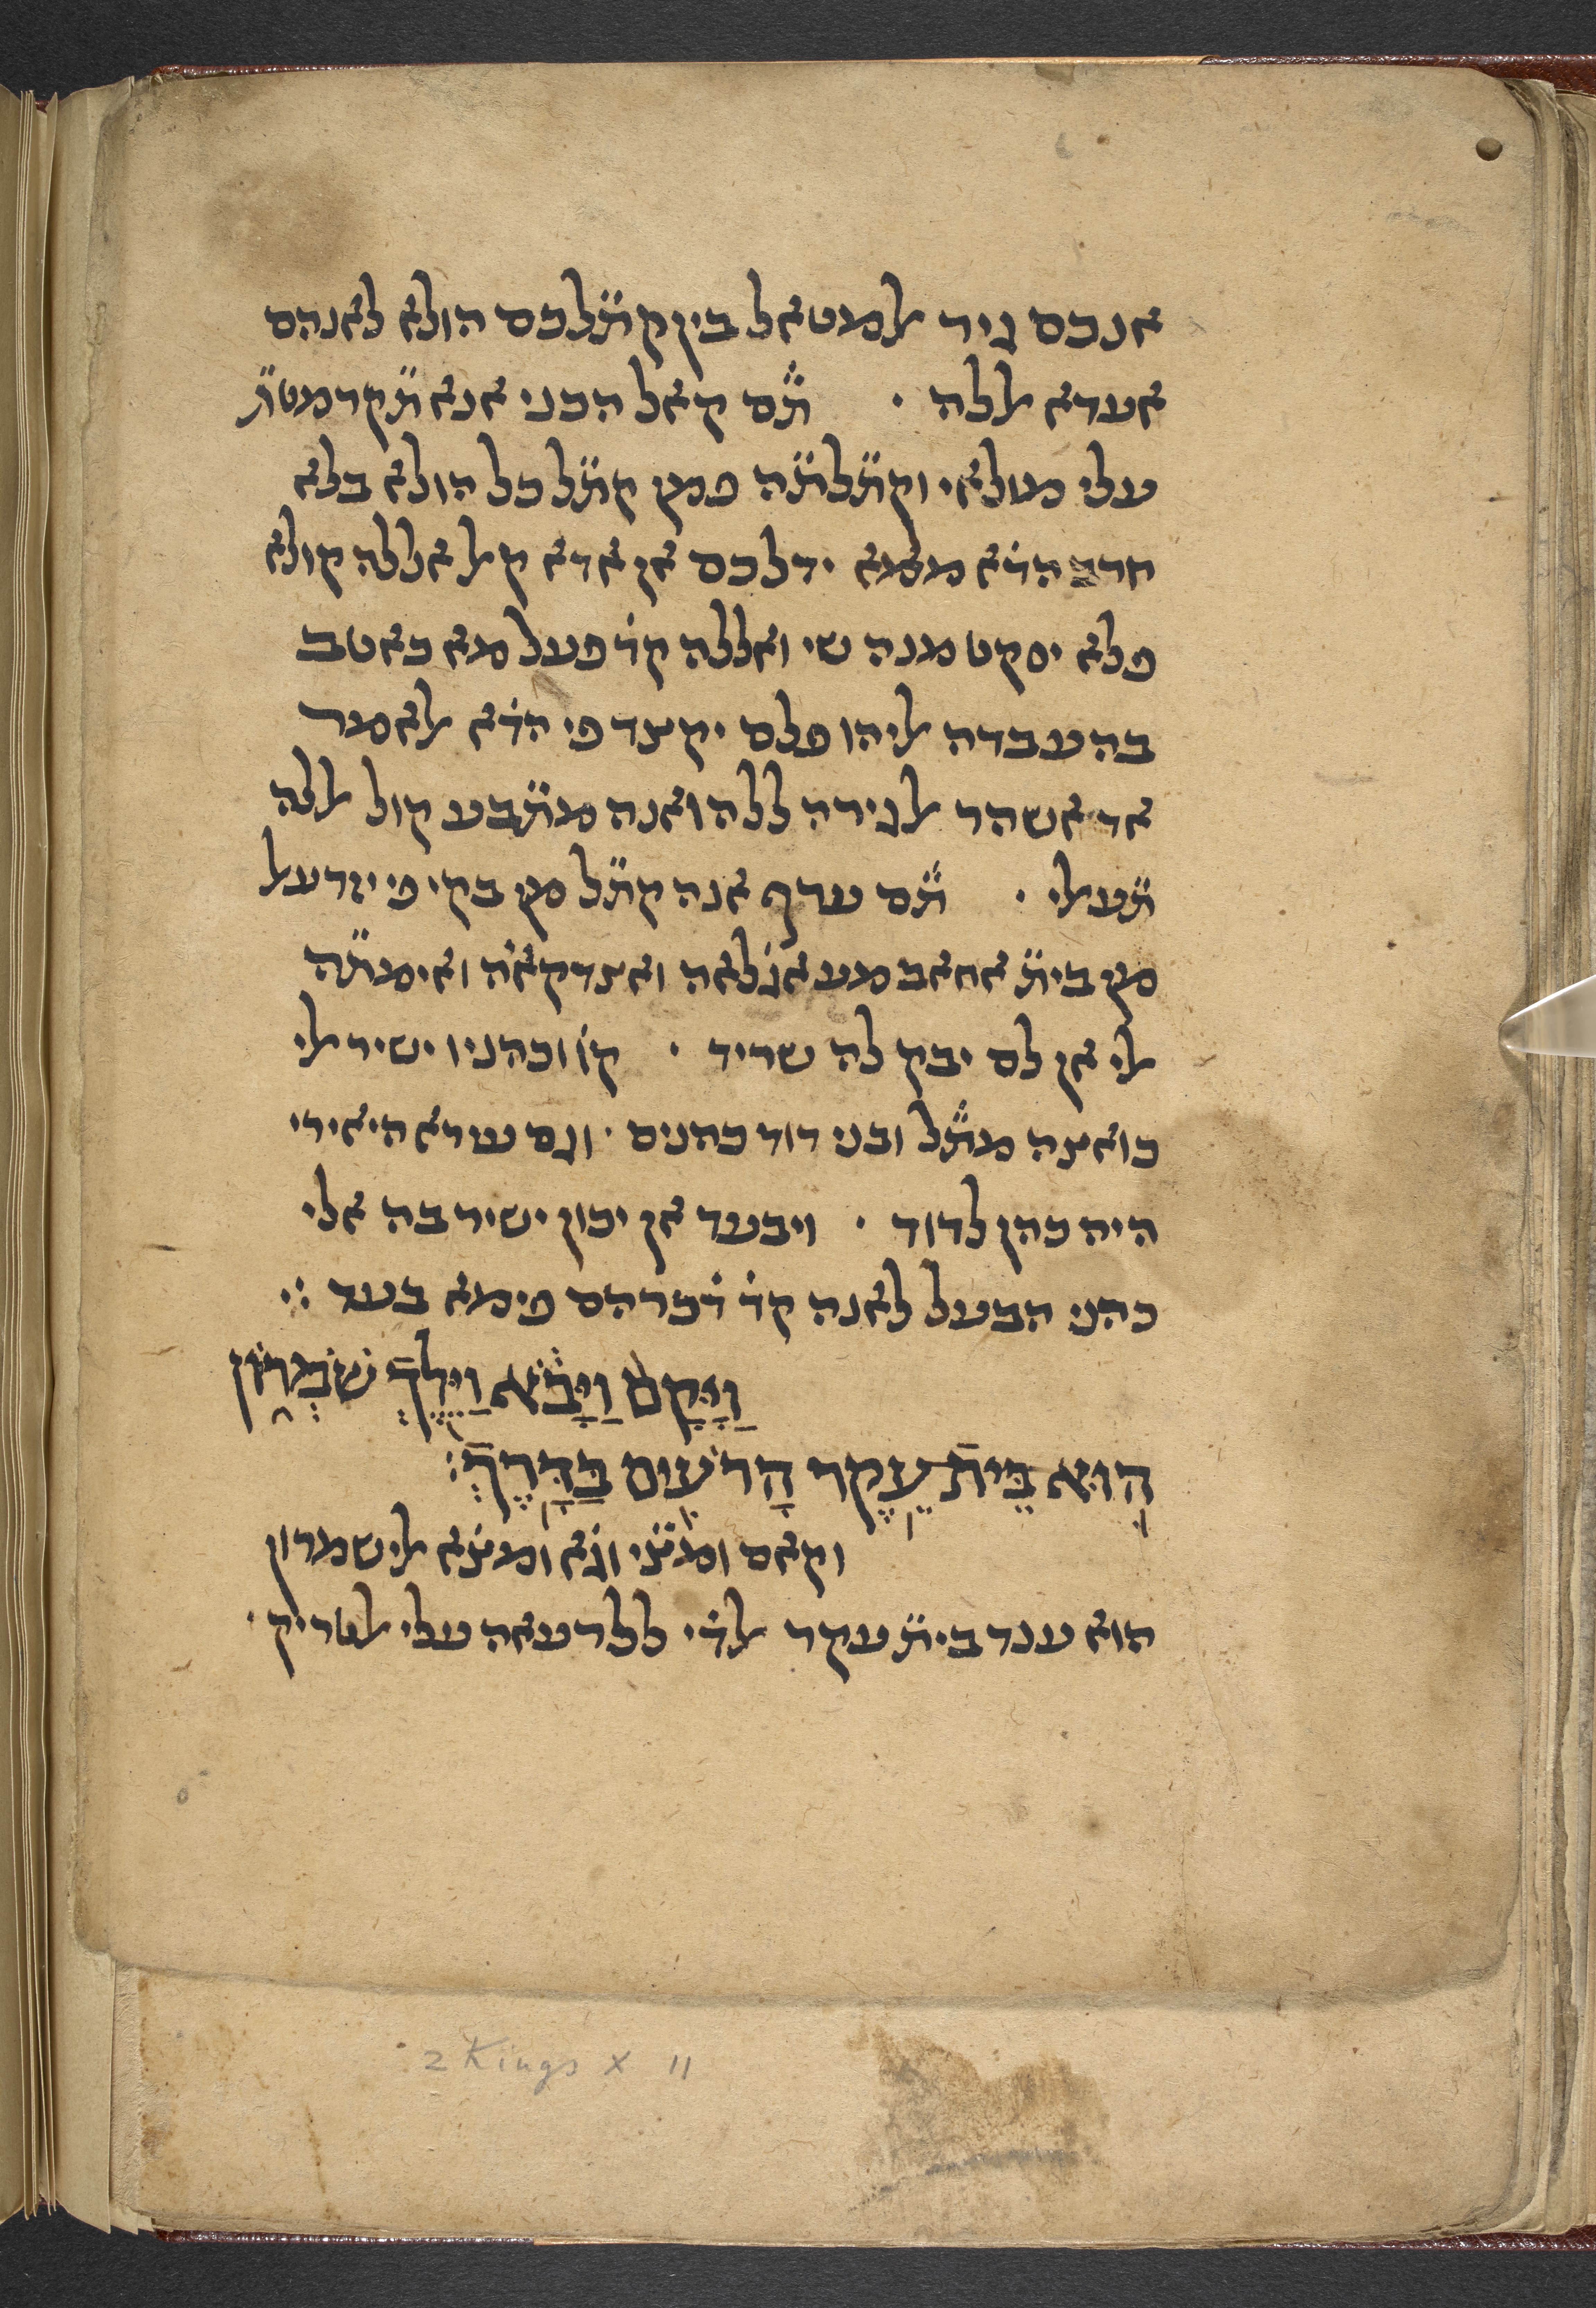 אנכם גיר אלמטאל בין קתׄלכם הולא לאנהם
אעדא אללה · תׄם קאל הבני אנא תׄקדמטתׄ
עלי מולאי וקתׄלתׄה פמן קתׄל כל הולא בלא
חרב הדׄא ממא ידלכם אן אדא קאל אללה קולא
פלא יסקט מנה שי ואללה קדׄ פעל מא כאטב
בה עבדה אליהו פלם יקצד פי הדׄא אלאמר
אד אשהר אלגירה ללה ואנה מתׄבע קול אללה
תׄעאלי · תׄם ערף אנה קתׄל מן בקי פי יזרעאל
מן ביתׄ אחאב מע אגׄלאה ואצדקאה ואימתׄה
אלי אן לם יבק לה שריד · קוׄ וכהניו ישיר אלי
כואצה מתׄל ובני דוד כהנים · וגם עירא היאירי
היה כהן לדוד · ויבעד אן יכון ישיר בה אלי
כהני הבעל לאנה קדׄ דׄכרהם פימא בעד ∴
וַיָּקָם וַיָּבֹא וַיֵּלֶךְ שֹׁמְרוֹן
הוּא בֵּית עֵקֶד הָרֹעִים בַּדָּרֶךְ׃
וקאם ומצׄי וגׄא ומצׄא אלי שמרון
הוא ענד ביתׄ עקד אלדׄי ללרעאה עלי אלטריק ·
2 Kings X 11